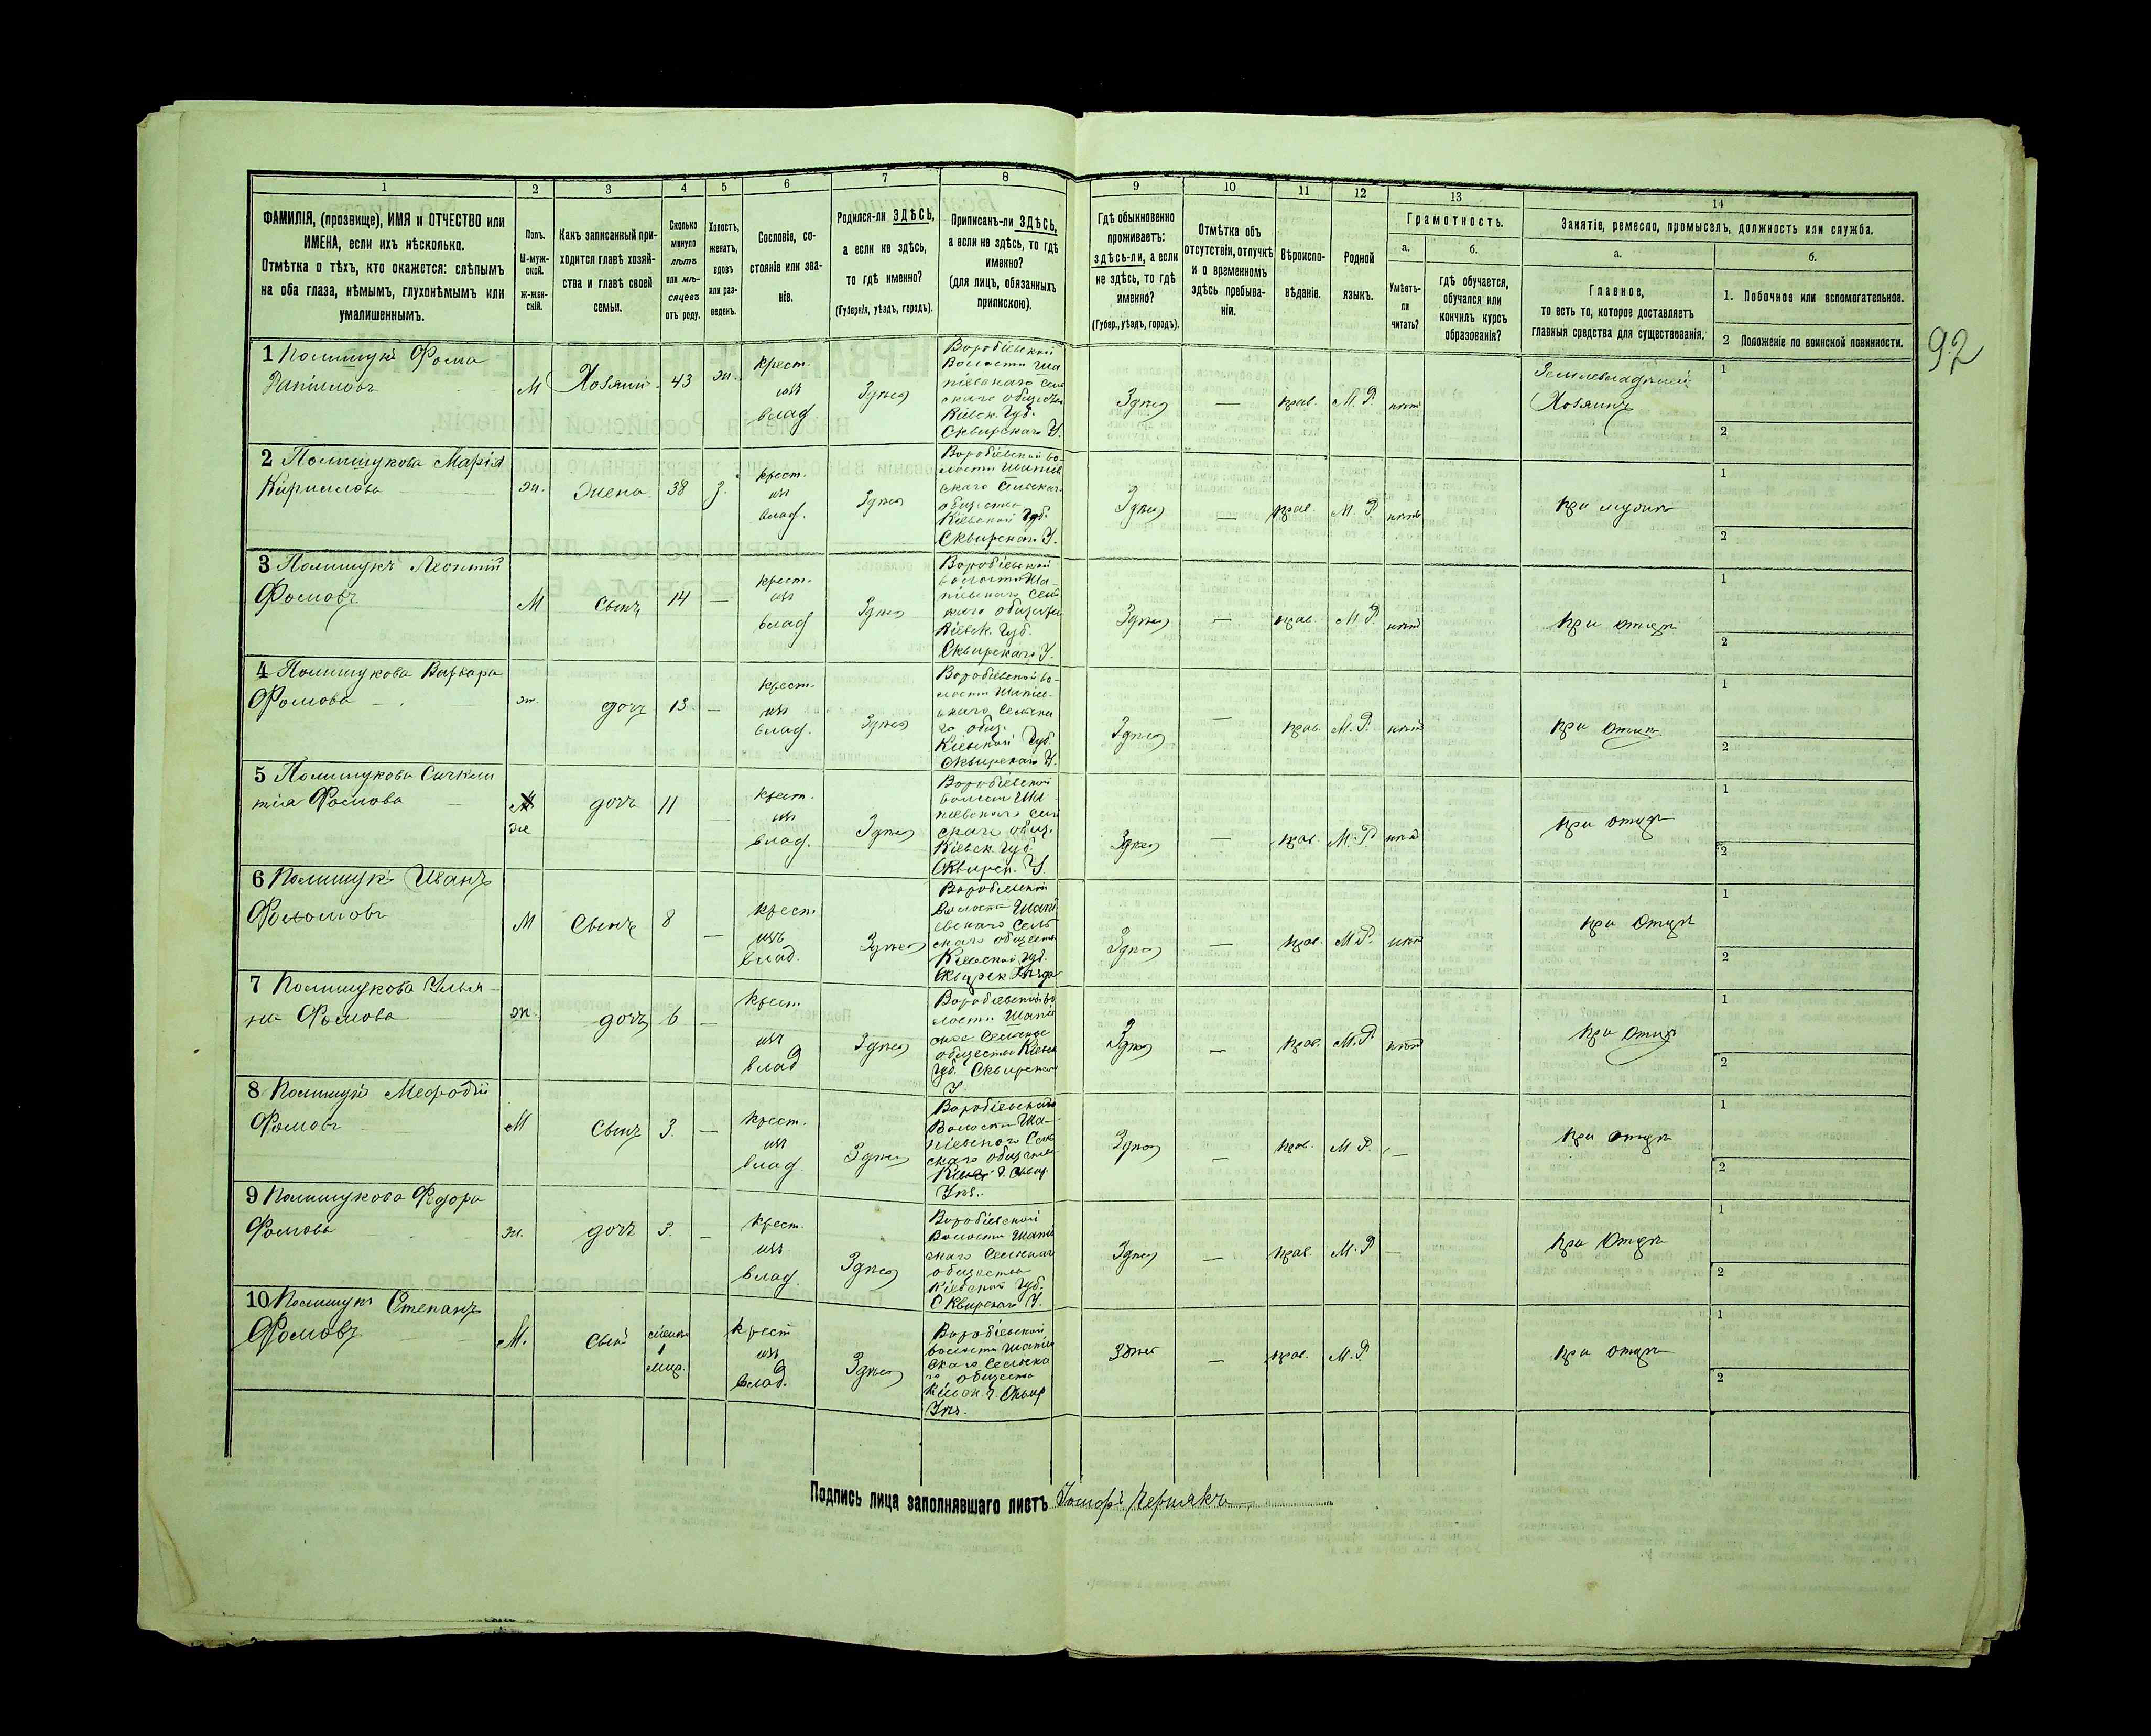 1
2
3
4
5
6
7
8
9
10
11
12
13
14
ФАМИЛІЯ, (прозвище), ИМЯ и ОТЧЕСТВО или
ИМЕНА, если ихъ нѣсколько.
Отмѣтка о тѣхъ, кто окажется: слѣпымъ
на оба глаза, нѣмымъ, глухонѣмымъ или
умалишеннымъ.
Полъ.
М-муж-
ской.
ж-жен-
скій.
Какъ записанный при-
ходится главѣ хозяй-
ства и главѣ своей
семьи.
Сколько
минуло
лѣтъ
или мѣ-
сяцевъ
отъ роду.
Холостъ,
женатъ,
вдовъ
или раз-
веденъ.
Сословіе, со-
стояніе или зва-
ніе.
Родился-ли ЗДѢСЬ,
а если не здѣсь,
то гдѣ именно?
(Губернія, уѣздъ, городъ).
Приписанъ-ли ЗДѢСЬ,
а если не здѣсь, то гдѣ
именно?
(для лицъ, обязанныхъ
припискою).
Гдѣ обыкновенно
проживаетъ:
здѣсь-ли, а если
не здѣсь, то гдѣ
именно?
(Губер., уѣздъ, городъ).
Отмѣтка объ
отсутствіи, отлучкѣ
и о временномъ
здѣсь пребыва-
ніи.
Вѣроиспо-
вѣданіе.
Родной
языкъ.
Грамотность.
а.
Умѣетъ-
ли
читать?
б.
гдѣ обучается,
обучался или
кончилъ курсъ
образованія?
Занятіе, ремесло, промыселъ, должность или служба.
а.
Главное,
то есть то, которое доставляетъ
главныя средства для существованія.
б.
1. Побочное или вспомогательное.
2 Положеніе по воинской повинности.
92
1 Полищукъ Фома
Даніиловъ
М
Хозяинъ
43
жн.
крест.
изъ
влад
Здѣсь
Воробіевской
Волости Ша
піевскаго Сель
скаго общества
Кіевск. Губ.
Сквирскаго У.
Здѣсь
—
прав.
М. Р.
нѣтъ
Хозяинъ
1
2
2 Полищукова Марія
Кирилова
жн.
Жена
38
з.
крест.
изъ
влад.
Здѣсь
Кіевской Губ.
Сквирскаго У.
Здѣсь
—
прав.
М. Р.
нѣтъ
при мужѣ
1
2
3 Полищукъ Леонтій
Фомовъ
М
Сынъ
14
—
крест.
изъ
влад
Здѣсь
Воробіевской
волости Ша-
піевскаго Сель
скаго общества
Кіевск. Губ.
Сквирскаго У.
Здѣсь
—
прав.
М. Р.
нѣтъ
при отцѣ
1
2
4 Полищукова Варвара
Фомова
жн.
дочь
13
—
крест.
изъ
влад.
Здѣсь
Кіевской Губ.
Сквирскаго У.
Здѣсь
—
прав.
М. Р.
нѣтъ
при отцѣ
1
2
5 Полищукова Синкли
тія Фомова
М
же
дочь
11
—
крест.
изъ
влад.
Здѣсь
Воробіевской
скаго общ.
Кіевск. Губ.
Сквирск. У.
Здѣсь
—
прав.
М. Р.
нѣтъ
при отцѣ
1
2
6 Полищукъ Иванъ
М
Сынъ
8
—
крест.
изъ
влад.
Здѣсь
Воробіевской
Волости Шапі
евскаго Сель
скаго общества
Кіевской Губ.
Здѣсь
—
прав.
М. Р.
нѣтъ
при отцѣ
1
2
7 Полищукова Улья-
на Фомова
жн
дочь
6
—
крест
изъ
влад
Здѣсь
Губ. Сквирскаго
У.
Здѣсь
—
прав.
М. Р.
нѣтъ
при отцѣ
1
2
8 Полищукъ Мефодій
Фомовъ
М
Сынъ
3.
—
крест.
изъ
влад
Здѣсь
Волости Ша-
піевского Сель
скаго общества
Уѣз.
Здѣсь
—
прав.
М. Р.
—
при отцѣ
1
2
9 Полищукова Федора
Фомова
жн.
дочь
3.
—
крест.
изъ
влад.
Здѣсь
Воробіевской
Волости Шапіе
скаго Сельскаго
общества
Кіевской Губ.
Сквирскаго У.
Здѣсь
—
прав.
М. Р
—
при Отцѣ
1
2
10 Полищукъ Степанъ
Фомовъ
М.
Сынъ
1
крест
изъ
влад.
Здѣсь
Воробіевской
волости Шапіе
скаго Сельска
го общества
Уѣз.
Здѣсь
—
прав.
М. Р.
при отцѣ
1
2
Подпись лица заполнявшаго листъ